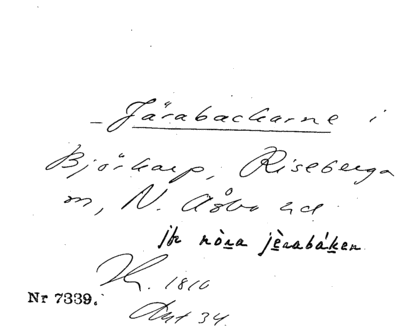 – Järabackarne i
Björkarp, Riseberga
m, N. Åsbo hd
jfr nòra jèrabáken
1810
Nr 7339.
34.